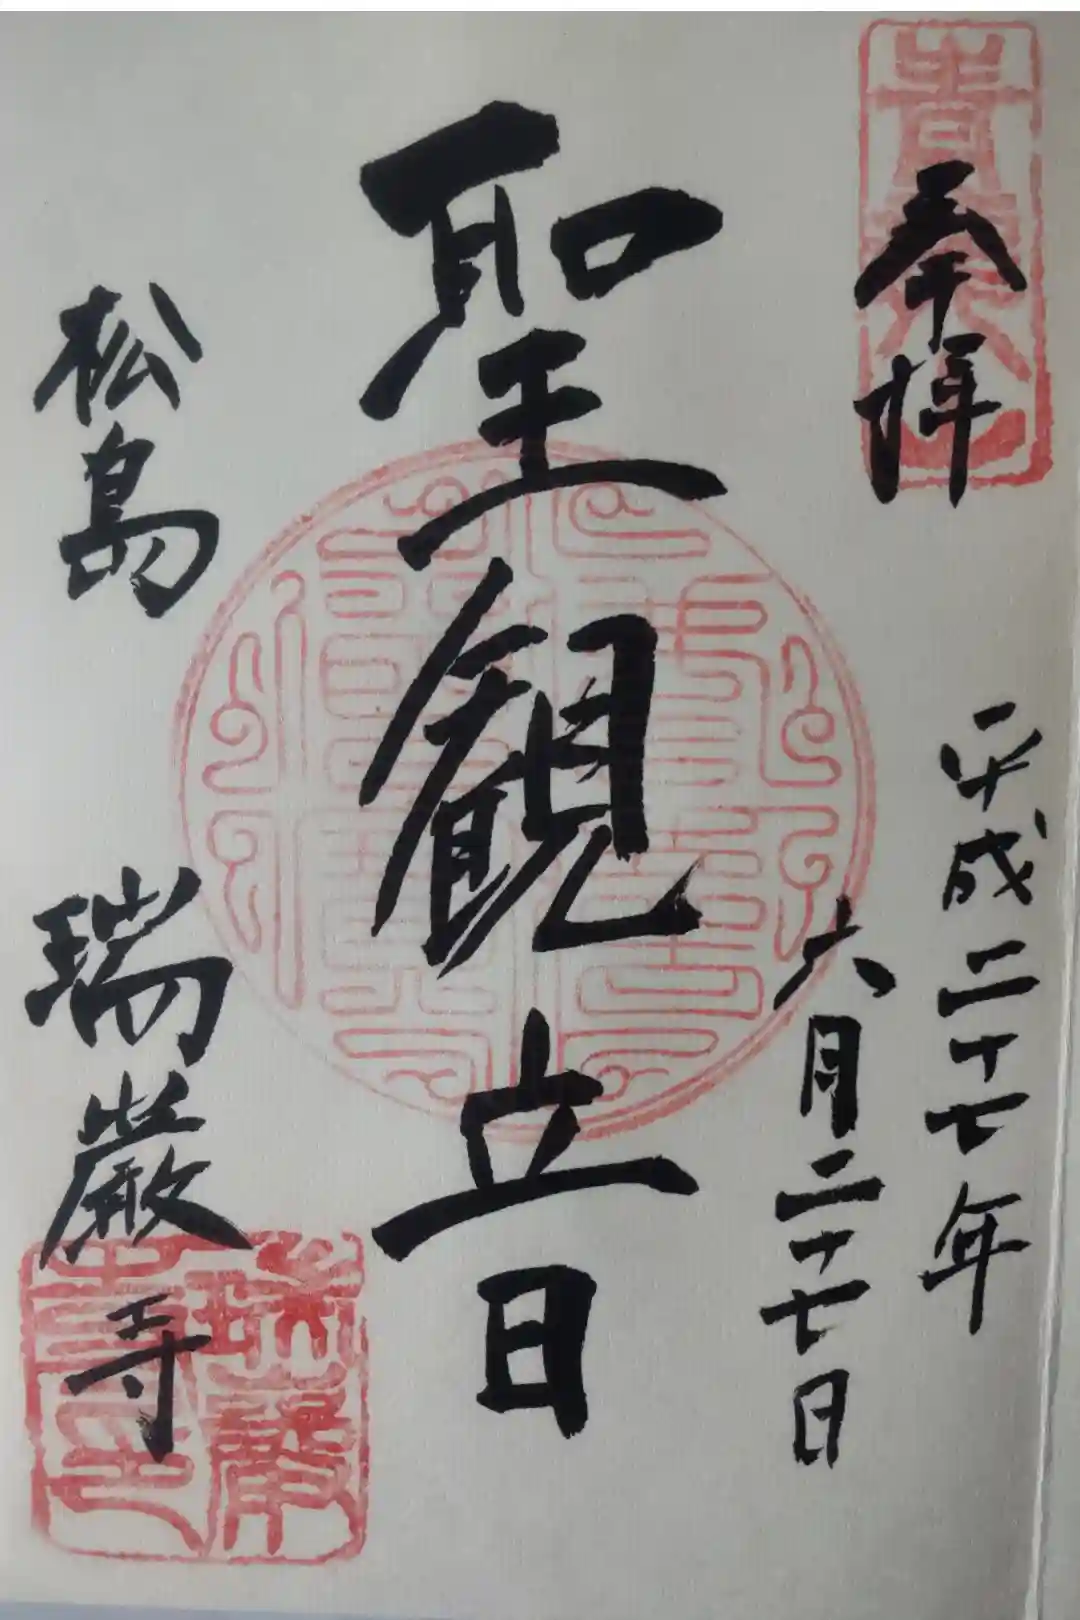 奉拝
平成二十七年
六月二十七日
聖観立日
松島
瑞巌寺